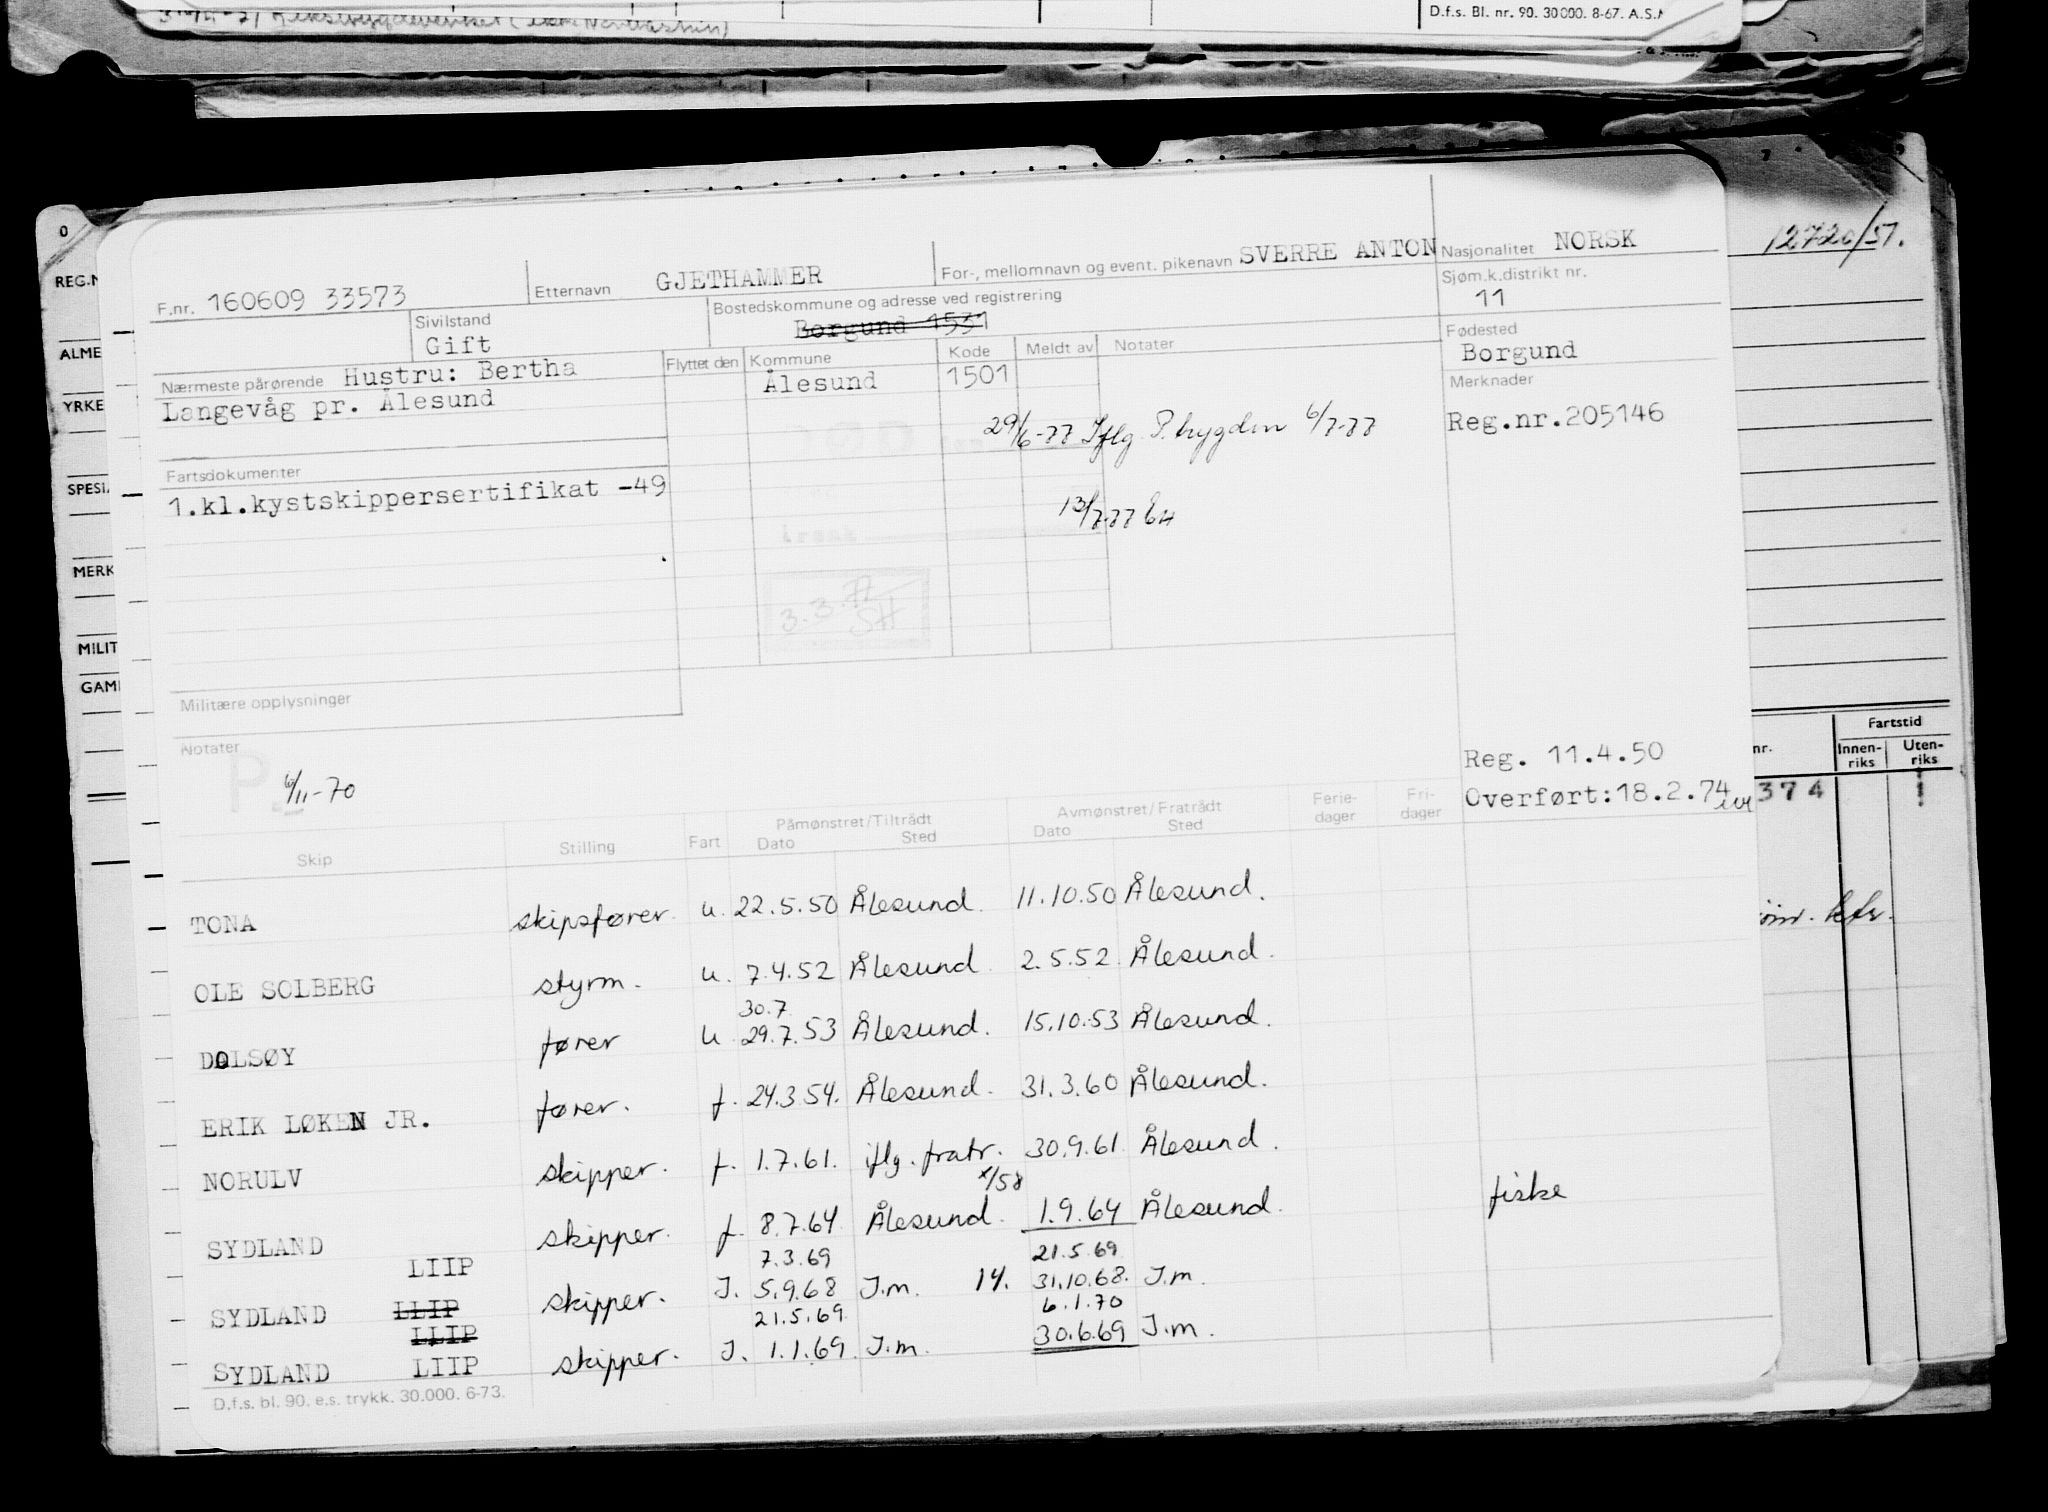 D.f.s. Bl. nr. 90. 30000. 8-67. A.S.
12720/51.
O
REG.N
ALME
YRKE
SPESI
MERK
MILIT
GAM
F.nr. 160609 33573
Etternavn GJETHAMMER
For-, mellomnavn og event. pikenavn SVERRE ANTON
Nasjonalitet NORSK
Sivilstand
Gift
Bostedskommune og adresse ved registrering
Borgund 1531
Sjøm.k.distrikt nr.
11
Nærmeste pårørende Hustru: Bertha
Langevåg pr. Ålesund
Flyttet den Kommune Kode Meldt av Notater
Ålesund 1501
Fødested
Borgund
Merknader
Reg.nr.205146
29/6-77 Iflg. P. 6/7-77
13/7-77
Fartsdokumenter
1.kl.kystskippersertifikat -49
DØD
3.3.77
SH
Militære opplysninger
Notater
P. 6/11-70
Reg. 11.4.50
Overført:18.2.74
nr. Fartstid
Innen-riks Uten-riks
374 1
Skip Stilling Fart Påmønstret/Tiltrådt Dato Sted Avmønstret/Fratrådt Dato Sted Ferie-dager Fri-dager
TONA skipsfører. u. 22.5.50 Ålesund. 11.10.50 Ålesund.
OLE SOLBERG styrm. u. 7.4.52 Ålesund. 2.5.52 Ålesund.
30.7
DALSØY fører u. 29.7.53 Ålesund. 15.10.53 Ålesund.
ERIK LØKEN JR. fører. f. 24.3.54. Ålesund. 31.3.60 Ålesund.
NORULV skipper. f. 1.7.61. iflg. fratr. 30.9.61. Ålesund.
x/58
SYDLAND skipper. f. 8.7.64. Ålesund. 1.9.64 Ålesund. fiske
LIIP 7.3.69 21.5.69
SYDLAND LLIP skipper. I. 5.9.68 I.m. 14. 31.10.68. I.m.
LLIP 21.5.69. 6.1.70
SYDLAND LIIP skipper. I. 1.1.69. I.m. 30.6.69 I.m.
D.f.s. bl. 90. e.s. trykk. 30.000. 6-73.